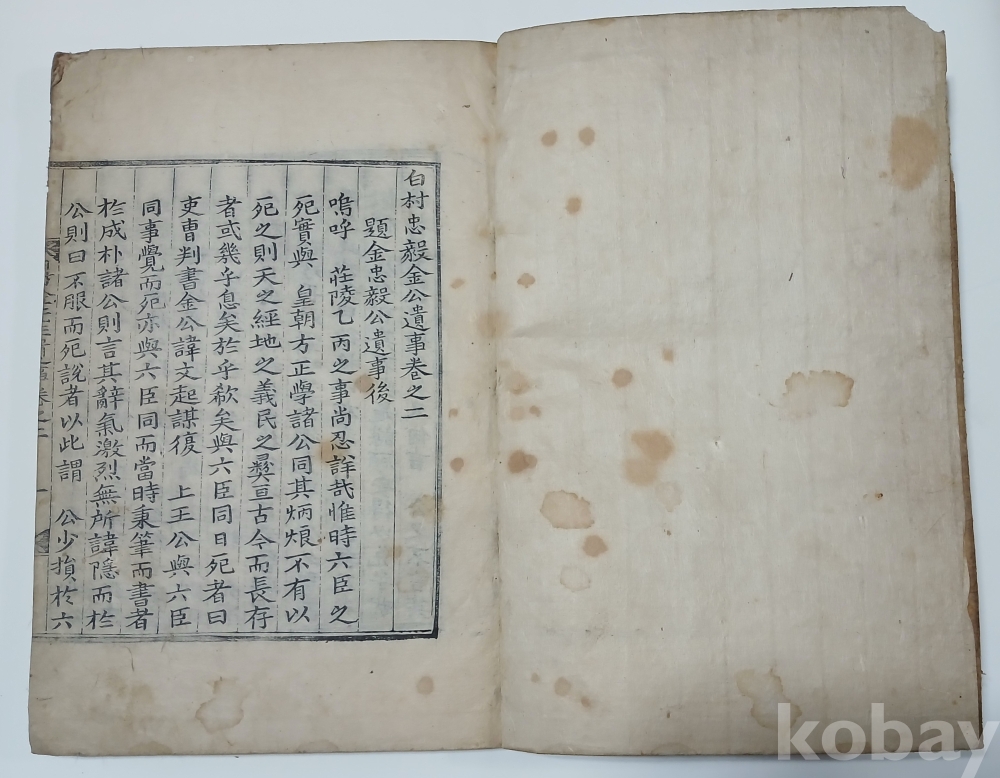 白村忠毅金公遺事卷之二
題金忠毅公遺事後
嗚呼 莊陵乙丙之事尚忍詳哉惟時六臣之
死實與 皇朝方正學諸公同其炳烺不有以
死之則天之經地之義民之彛亘古今而長存
者或幾乎息矣於乎欷矣與六臣同日死者曰
吏曹判書金公諱文起謀復 上王公與六臣
同事覺而死亦與六臣同而當時秉筆而書者
於成朴諸公則言其辭氣激烈無所諱隱而於
公則曰不服而死說者以此謂 公少損於六
kobay